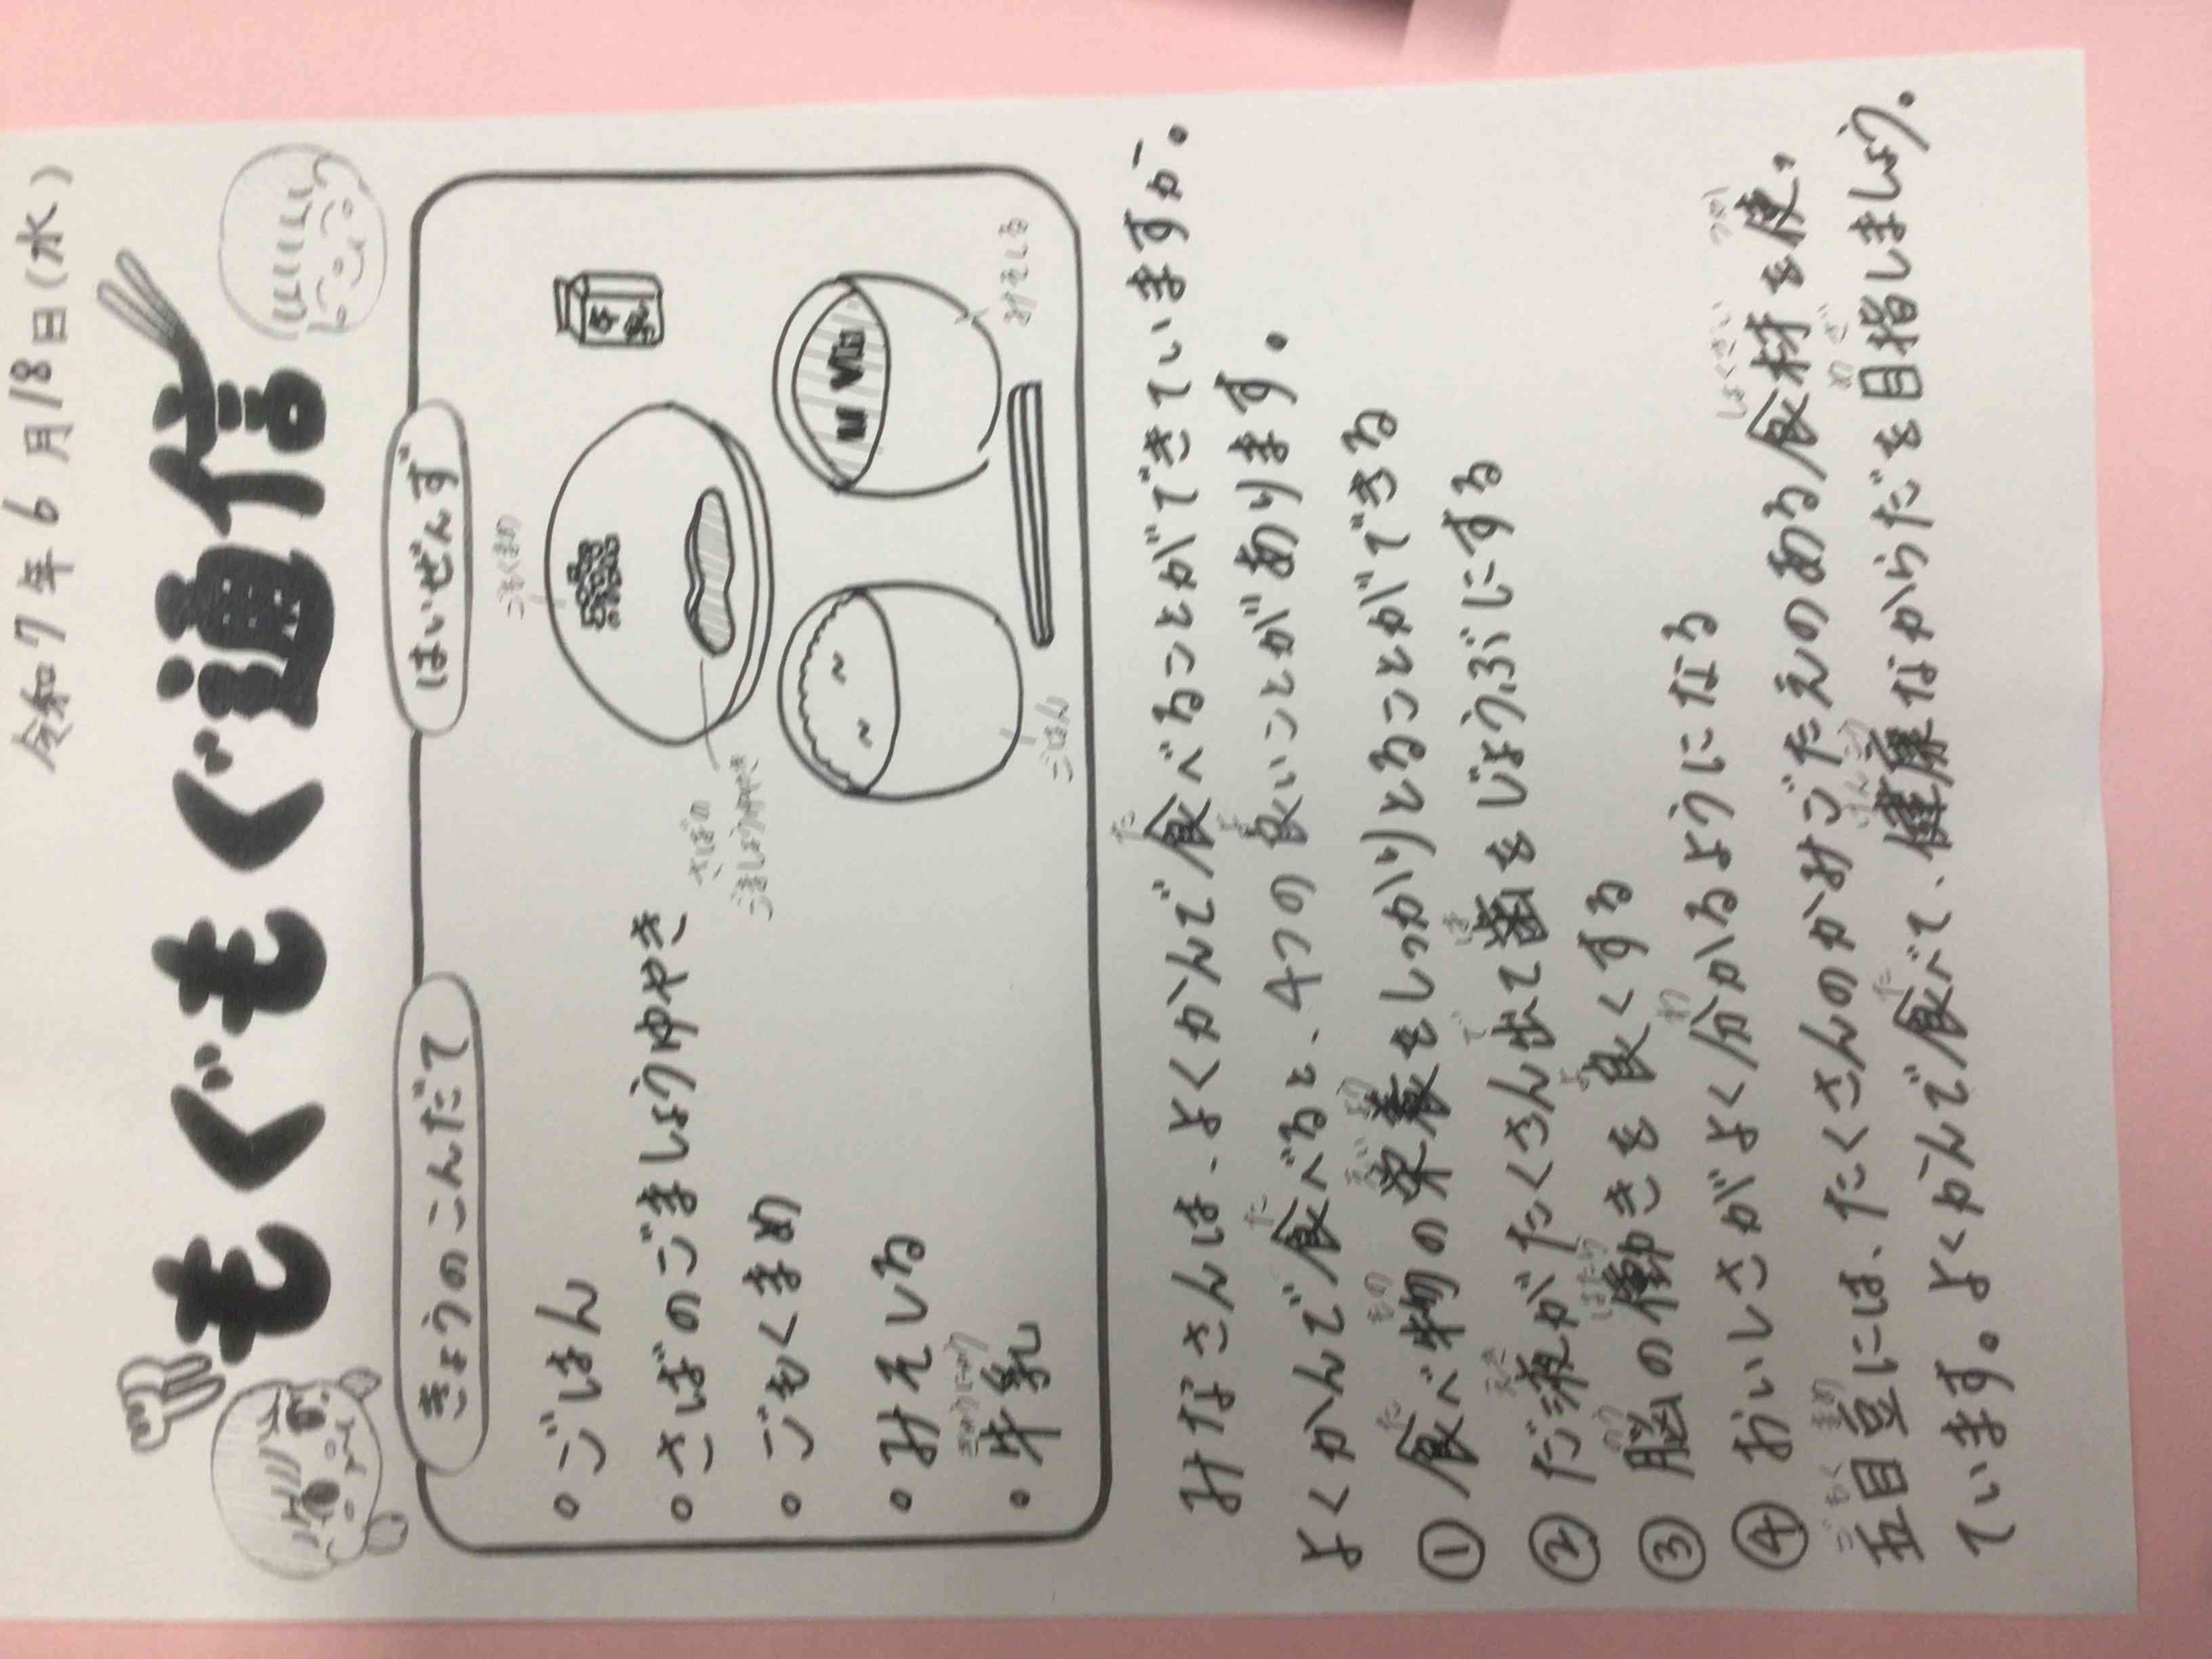 令和7年6月18日(水)
もぐもぐ通信
きょうのこんだて
はいぜんず
・ごはん
・さばのごましょうゆやき
・ごもくまめ
・みそしる
ぎゅうにゅう
・牛乳
ごもくまめ
牛乳
さばの
ごましょうゆやき
ごはん
みそしる
た
みなさんは、よくかんで食べることができていますか。
た よ
よくかんで食べると、4つの良いことがあります。
た もの えいよう
①食べ物の栄養をしっかりとることができる
えき で は
②だ液がたくさん出て歯をじょうぶにする
のう はたら よ
③脳の働きを良くする
わ
④おいしさがよく分かるようになる
ごもくまめ しょくざい つか
五目豆には、たくさんのかみごたえのある食材を使っ
た けんこう めざ
ています。よくかんで食べて、健康なからだを目指しましょう。